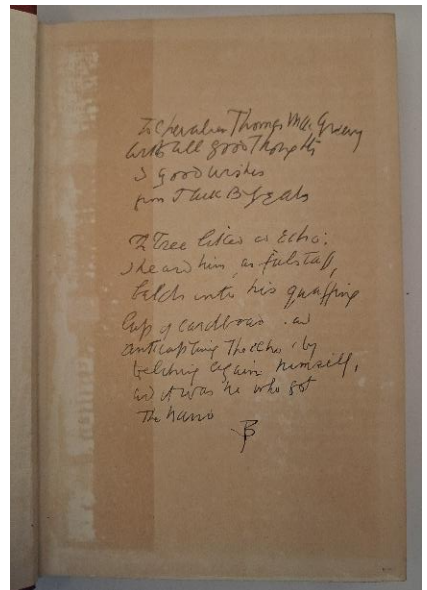 To Chevalier Thomas MacGreevy
with all good Thoughts
& good wishes
from Jack B Yeats
Tree liked an Echo:
I heard him, as Falstaff,
belch into his quaffing
Cup of cardboard and
anticipating The echo, by
belching again himself,
and it was he who got
The hand